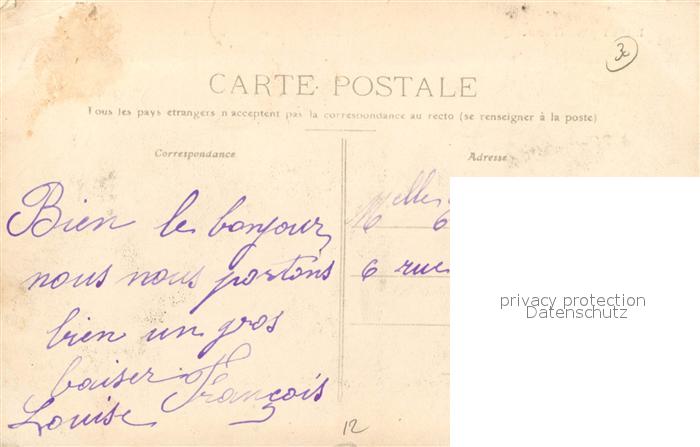 30
CARTE POSTALE
Tous les pays étrangers n'acceptent pas la correspondance au recto (se renseigner à la poste)
Correspondance
Adresse
Bien le bonjour
nous nous portons
bien un gros
baiser François
Louise
Melles
6 rue
privacy protection
Datenschutz
12